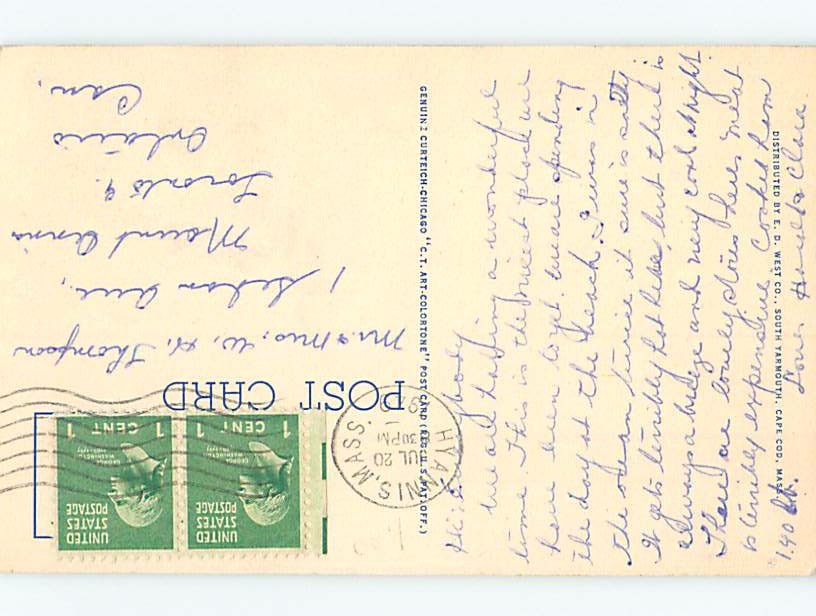 POST CARD
UNITED
STATES
POSTAGE
GEORGE
WASHINGTON
1789-1797
1 CENT 1
UNITED
STATES
POSTAGE
GEORGE
WASHINGTON
1789-1797
1 CENT 1
HYANNIS, MASS.
JUL 20
30 PM
Mr. & Mrs. W. H. Thompson
1 Ave.,
Mount
Toronto 9.
Ontario
Can.
GENUINE CURTEICH-CHICAGO "C.T. ART-COLORTONE" POST CARD (REG. U.S. PAT. OFF.)
We are having a wonderful
time. This is the nicest place we
have been to yet. We are spending
the day at the beach. I was in
the ocean twice it sure is salty
It gets terribly hot here, but there is
always a breeze and very cool at night.
There are lovely stores here. Meat
is terribly expensive. Cooked ham
1.40 lb.
Love, Harold & Clara.
DISTRIBUTED BY E. D. WEST CO., SOUTH YARMOUTH, CAPE COD, MASS.